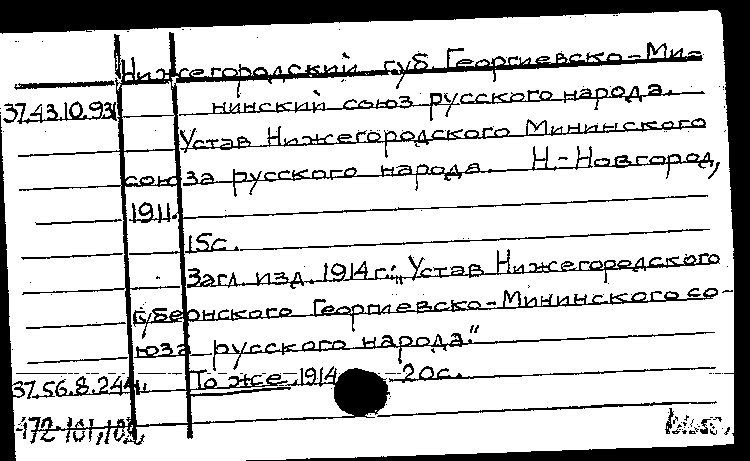 Нижегородский губ. Георгиевско-Ми-
37.43.10.93 нинский союз русского народа.
Устав Нижегородского Мининского
союза русского народа. Н.-Новгород,
1911.
15с.
Загл. изд. 1914 г.: „Устав Нижегородского
губернского Георгиевско-Мининского со-
юза русского народа."
37.56.8.244. То же, 1914 20с.
472-101,102